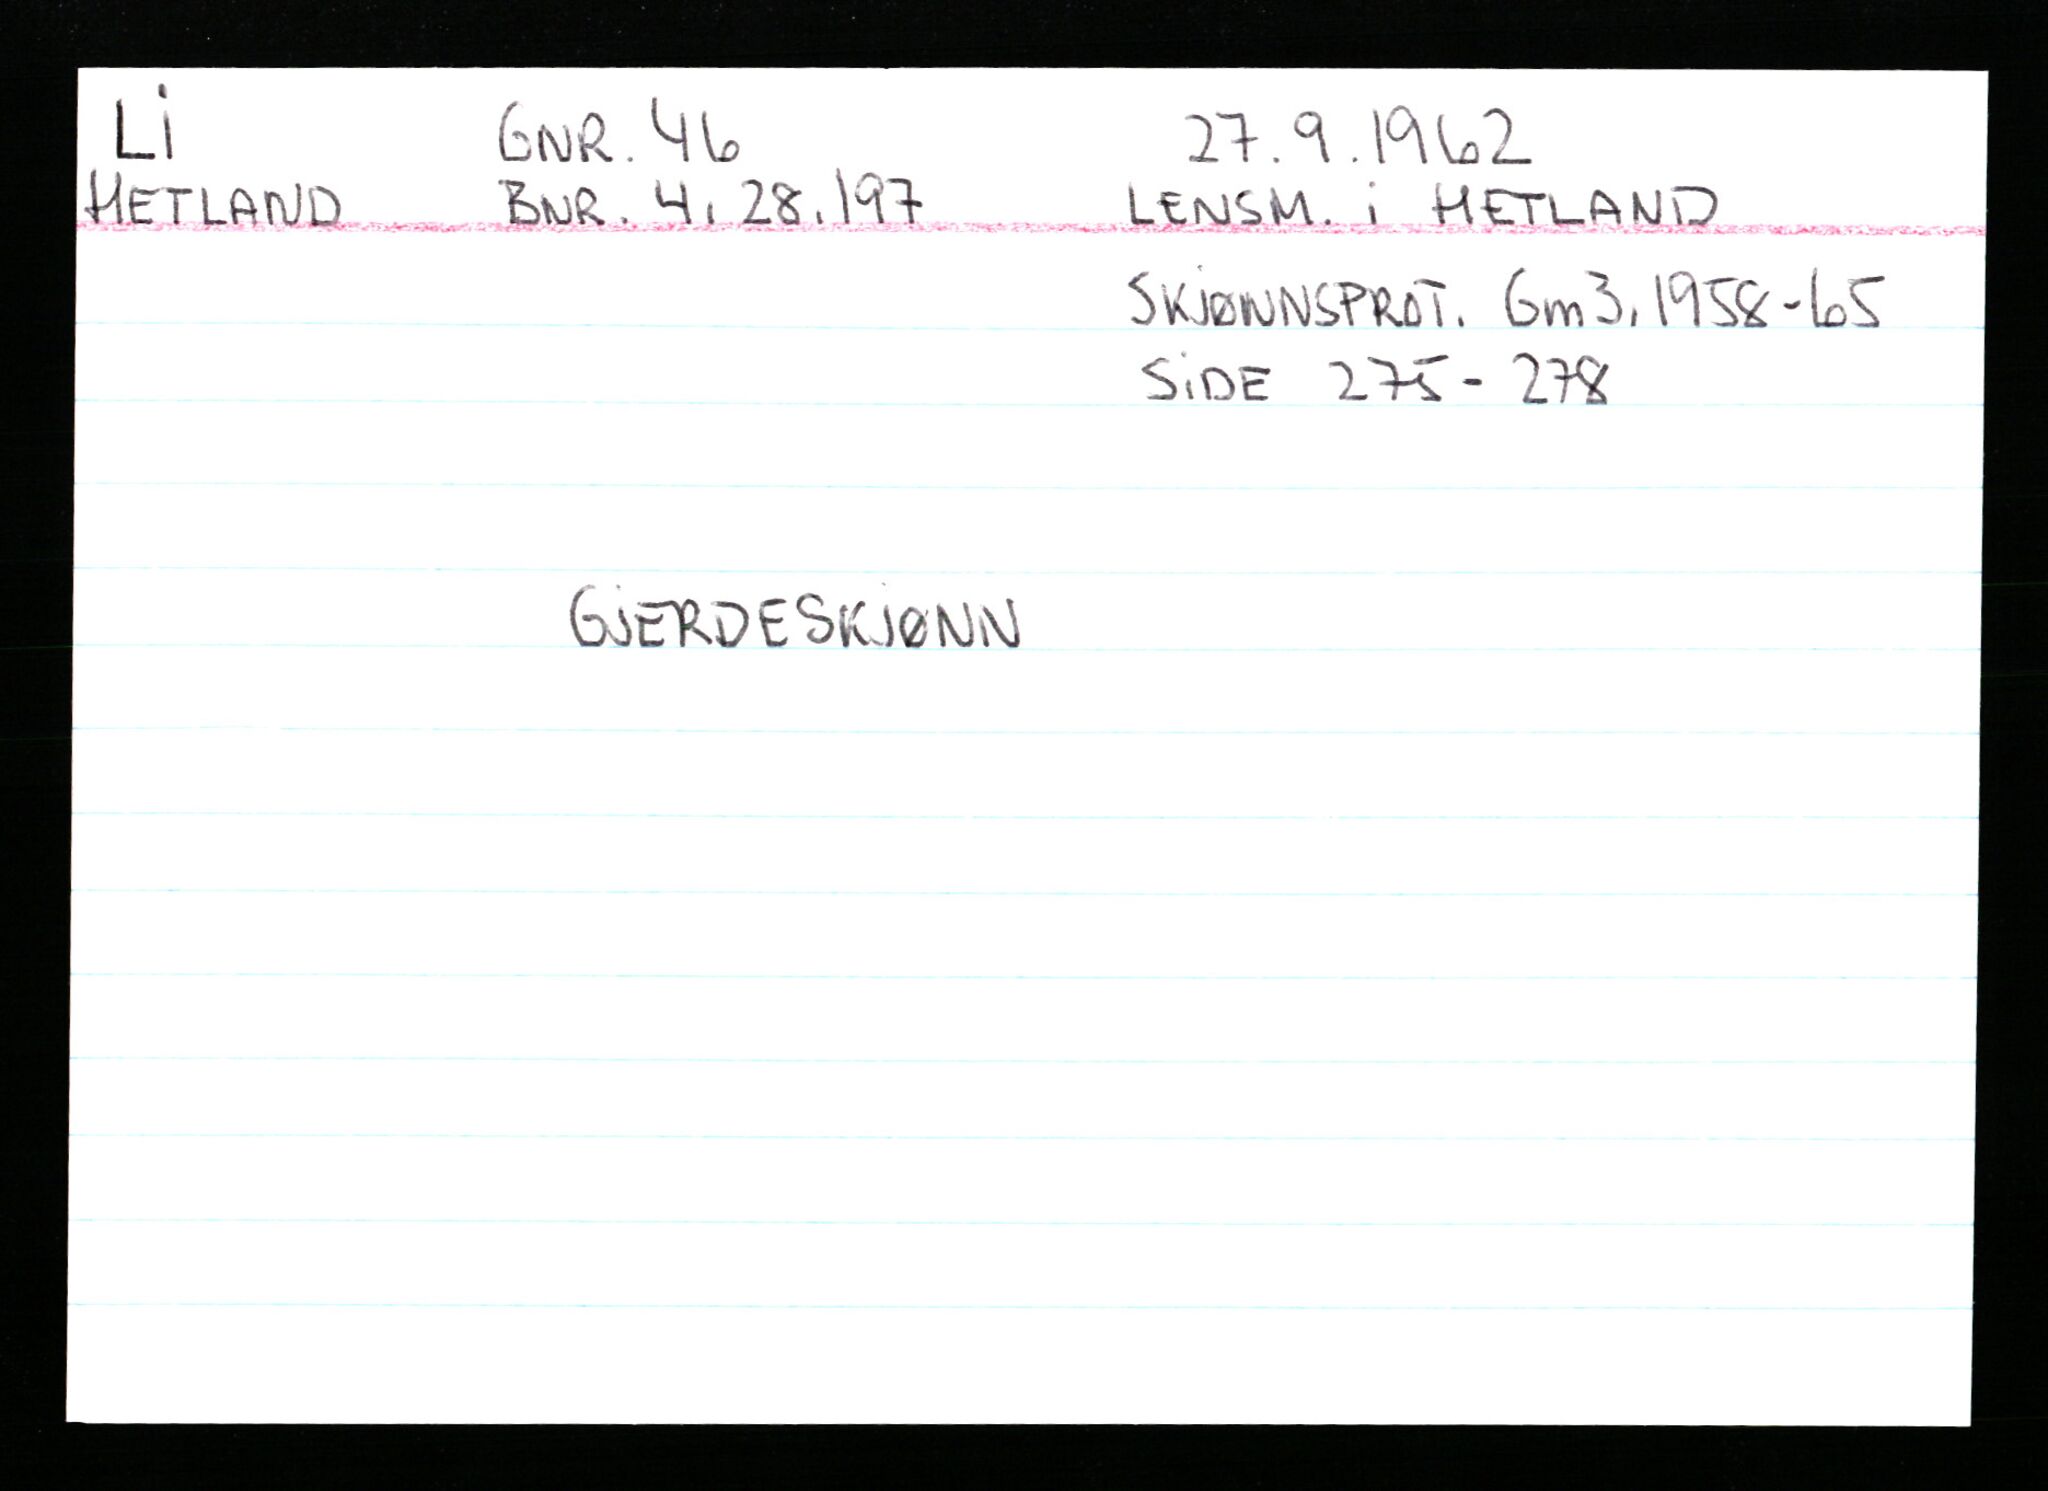 Li GNR. 46 27.9.1962
HETLAND BNR. 4, 28, 197 LENSM. i HETLAND
SKJØNNSPROT. Gm3, 1958-65
SiDE 275-278
GJERDESKJØNN